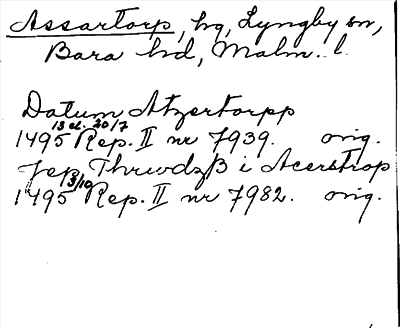 Assartorp, hg, Lyngby sn,
Bara hd, Malm. l.
Datum Atzertorpp
13 el. 20/7
1495 Rep. II nr 7939. orig.
Jep Thrwdzß i Acerstrop
3/10
1495 Rep. II nr 7982. orig.